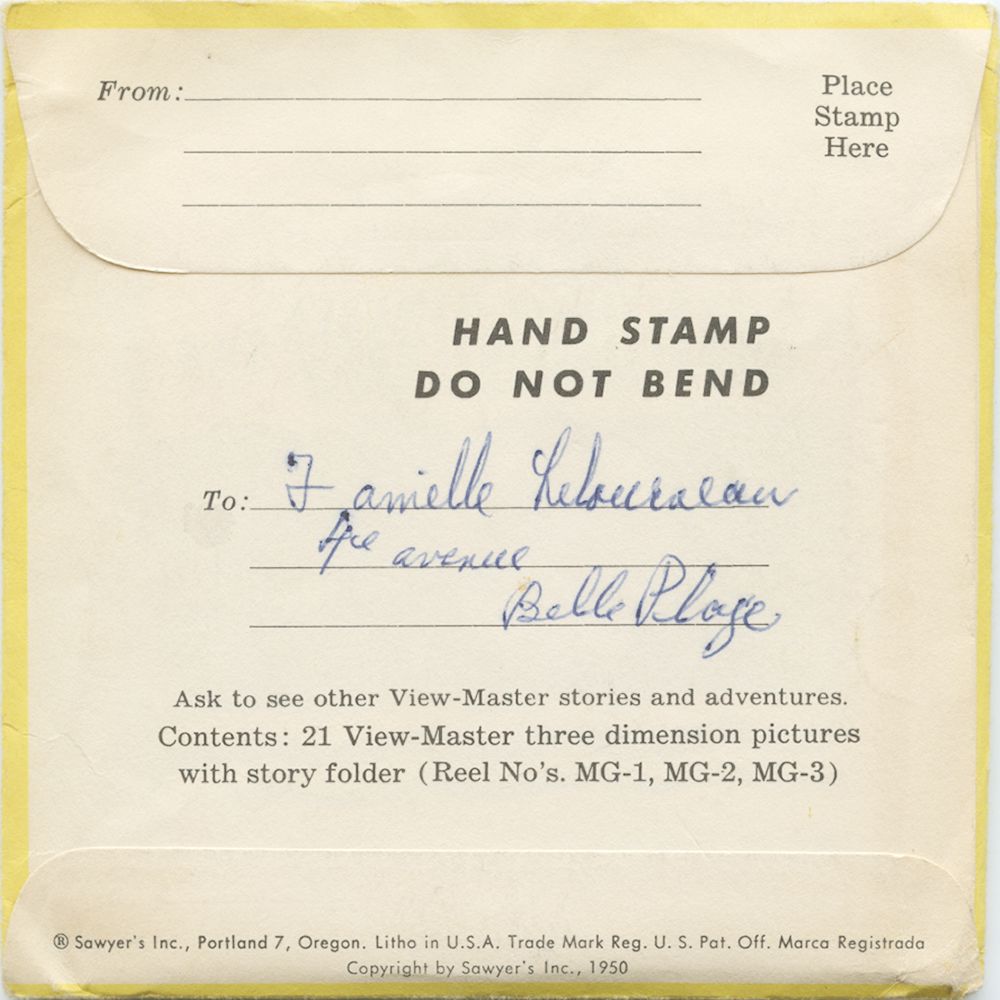 From:
Place
Stamp
Here
HAND STAMP
DO NOT BEND
To: Famille Letourneau
4ie avenue
Belle Plage
Ask to see other View-Master stories and adventures.
Contents: 21 View-Master three dimension pictures
with story folder (Reel No's. MG-1, MG-2, MG-3)
® Sawyer's Inc., Portland 7, Oregon. Litho in U.S.A. Trade Mark Reg. U. S. Pat. Off. Marca Registrada
Copyright by Sawyer's Inc., 1950